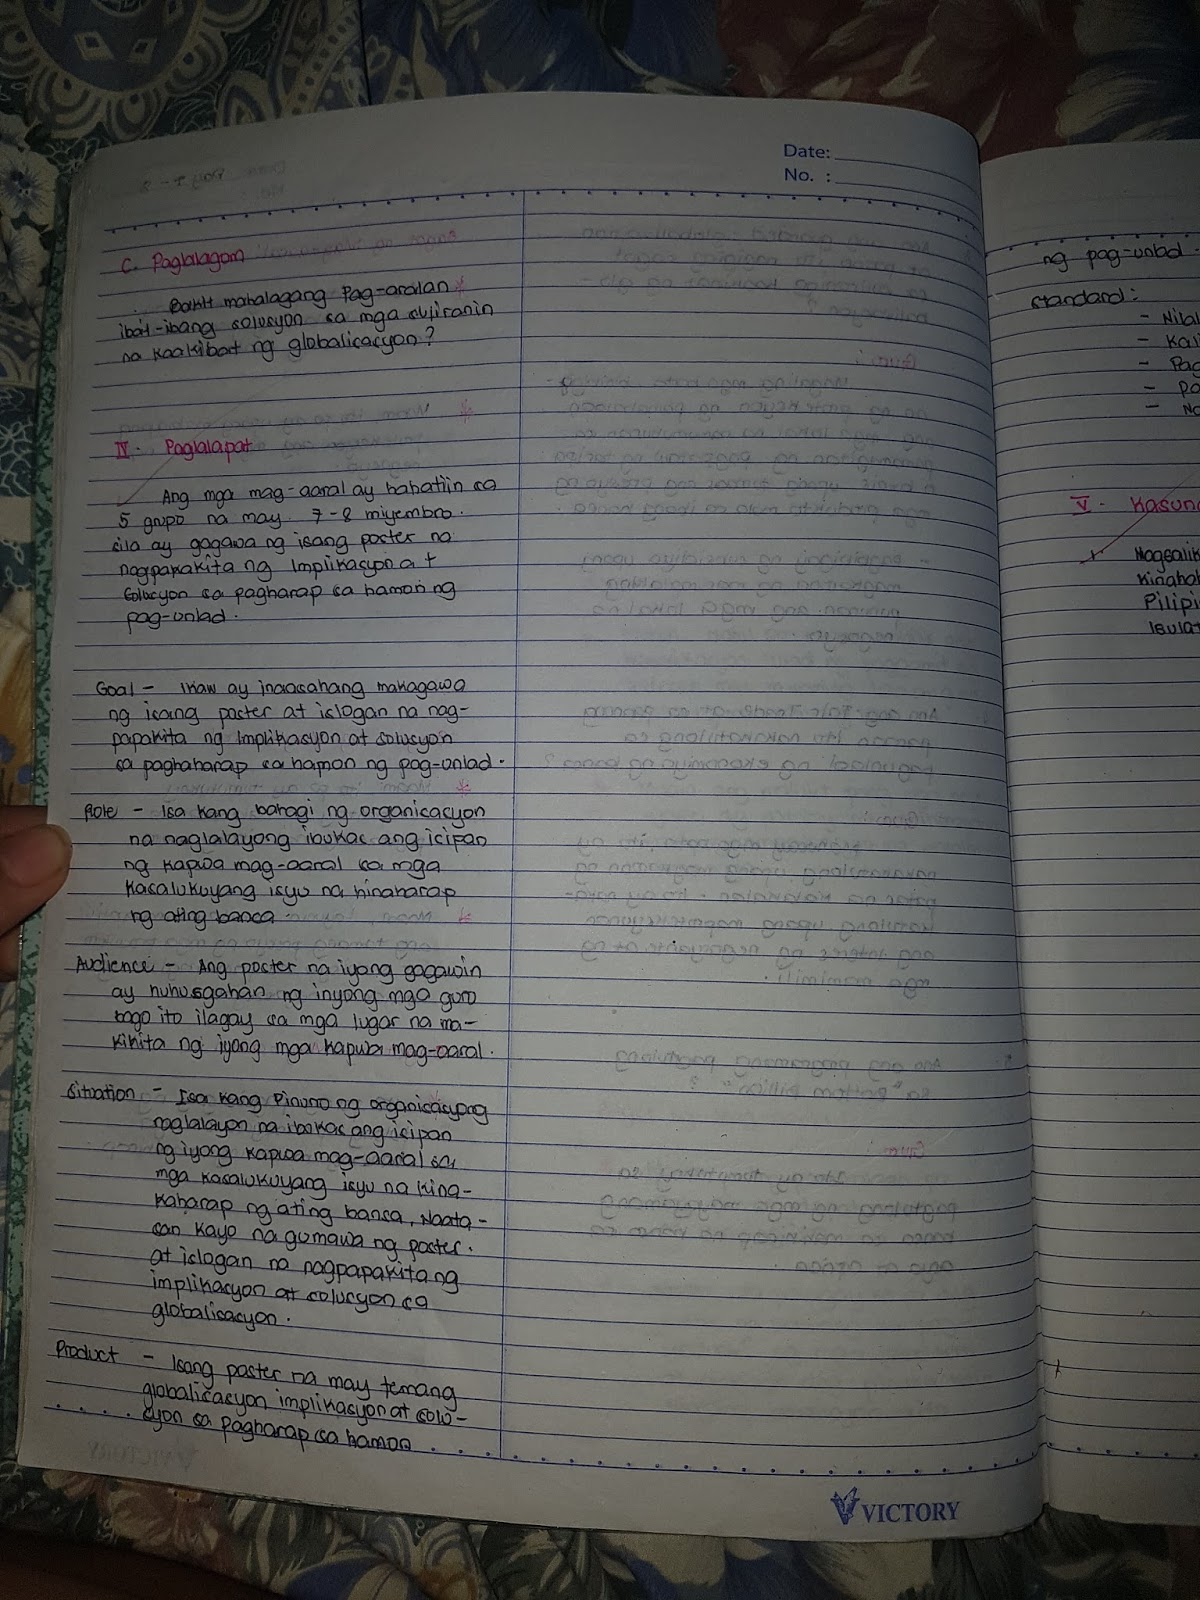 Date:
No. :
C. Paglalagom
Bakit mahalagang Pag-aralan
ibat-ibang solusyon sa mga suliranin
na kaakibat ng globalisasyon?
IV. Paglalapat
Ang mga mag-aaral ay hahatiin sa
5 grupo na may 7-8 miyembro.
sila ay gagawa ng isang poster na
nagpapakita ng Implikasyon at
Solusyon sa pagharap sa hamon ng
pag-unlad.
Goal - Ikaw ay inaasahang makagawa
ng isang poster at islogan na nag-
papakita ng Implikasyon at solusyon
sa paghaharap sa hamon ng pag-unlad.
Role - Isa kang bahagi ng organisasyon
na naglalayong ibukas ang isipan
ng kapwa mag-aaral sa mga
kasalukuyang isyu na hinaharap
ng ating bansa.
Audience - Ang poster na iyong gagawin
ay huhusgahan ng inyong mga guro
bago ito ilagay sa mga lugar na ma-
kikita ng iyong mga kapwa mag-aaral.
Situation - Isa kang Pinuno ng organisasyong
naglalayon na ibukas ang isipan
ng iyong kapwa mag-aaral sa
mga kasalukuyang isyu na kina-
kaharap ng ating bansa, Naata-
san kayo na gumawa ng poster.
at islogan na nagpapakita ng
implikasyon at solusyon sa
globalisasyon.
Product - Isang poster na may temang
globalisasyon implikasyon at solu-
syon sa pagharap sa hamon
VICTORY
ng pag-unlad.
Standard:
- Nilal
- Kali
- Pag
- Pa
- Na
V. Kasund
Magsalik
kinahah
Pilipi
Isulat